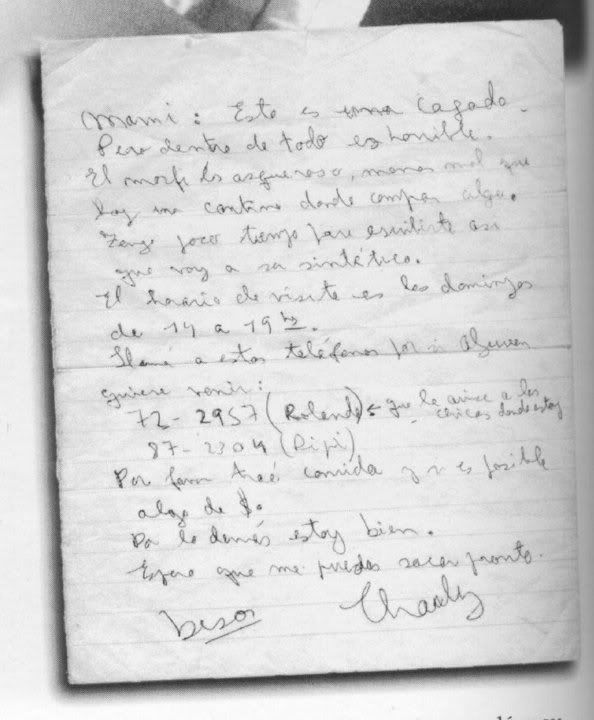 Mami: Esto es una cagada.
Pero dentro de todo es horrible.
El morfi es asqueroso, menos mal que
hay una cantina donde comprar algo.
Tengo poco tiempo para escribirte asi
que voy a ser sintético.
El horario de visita es los domingos
de 14 a 19 hs.
Llamá a estos teléfonos por si alguien
quiere venir:
72-2957 (Rolando) que le avise a las
chicas donde estoy
87-2304 (Pipi)
Por favor traé comida y si es posible
algo de $.
Por lo demás estoy bien.
Espero que me puedas sacar pronto.
besos Charly